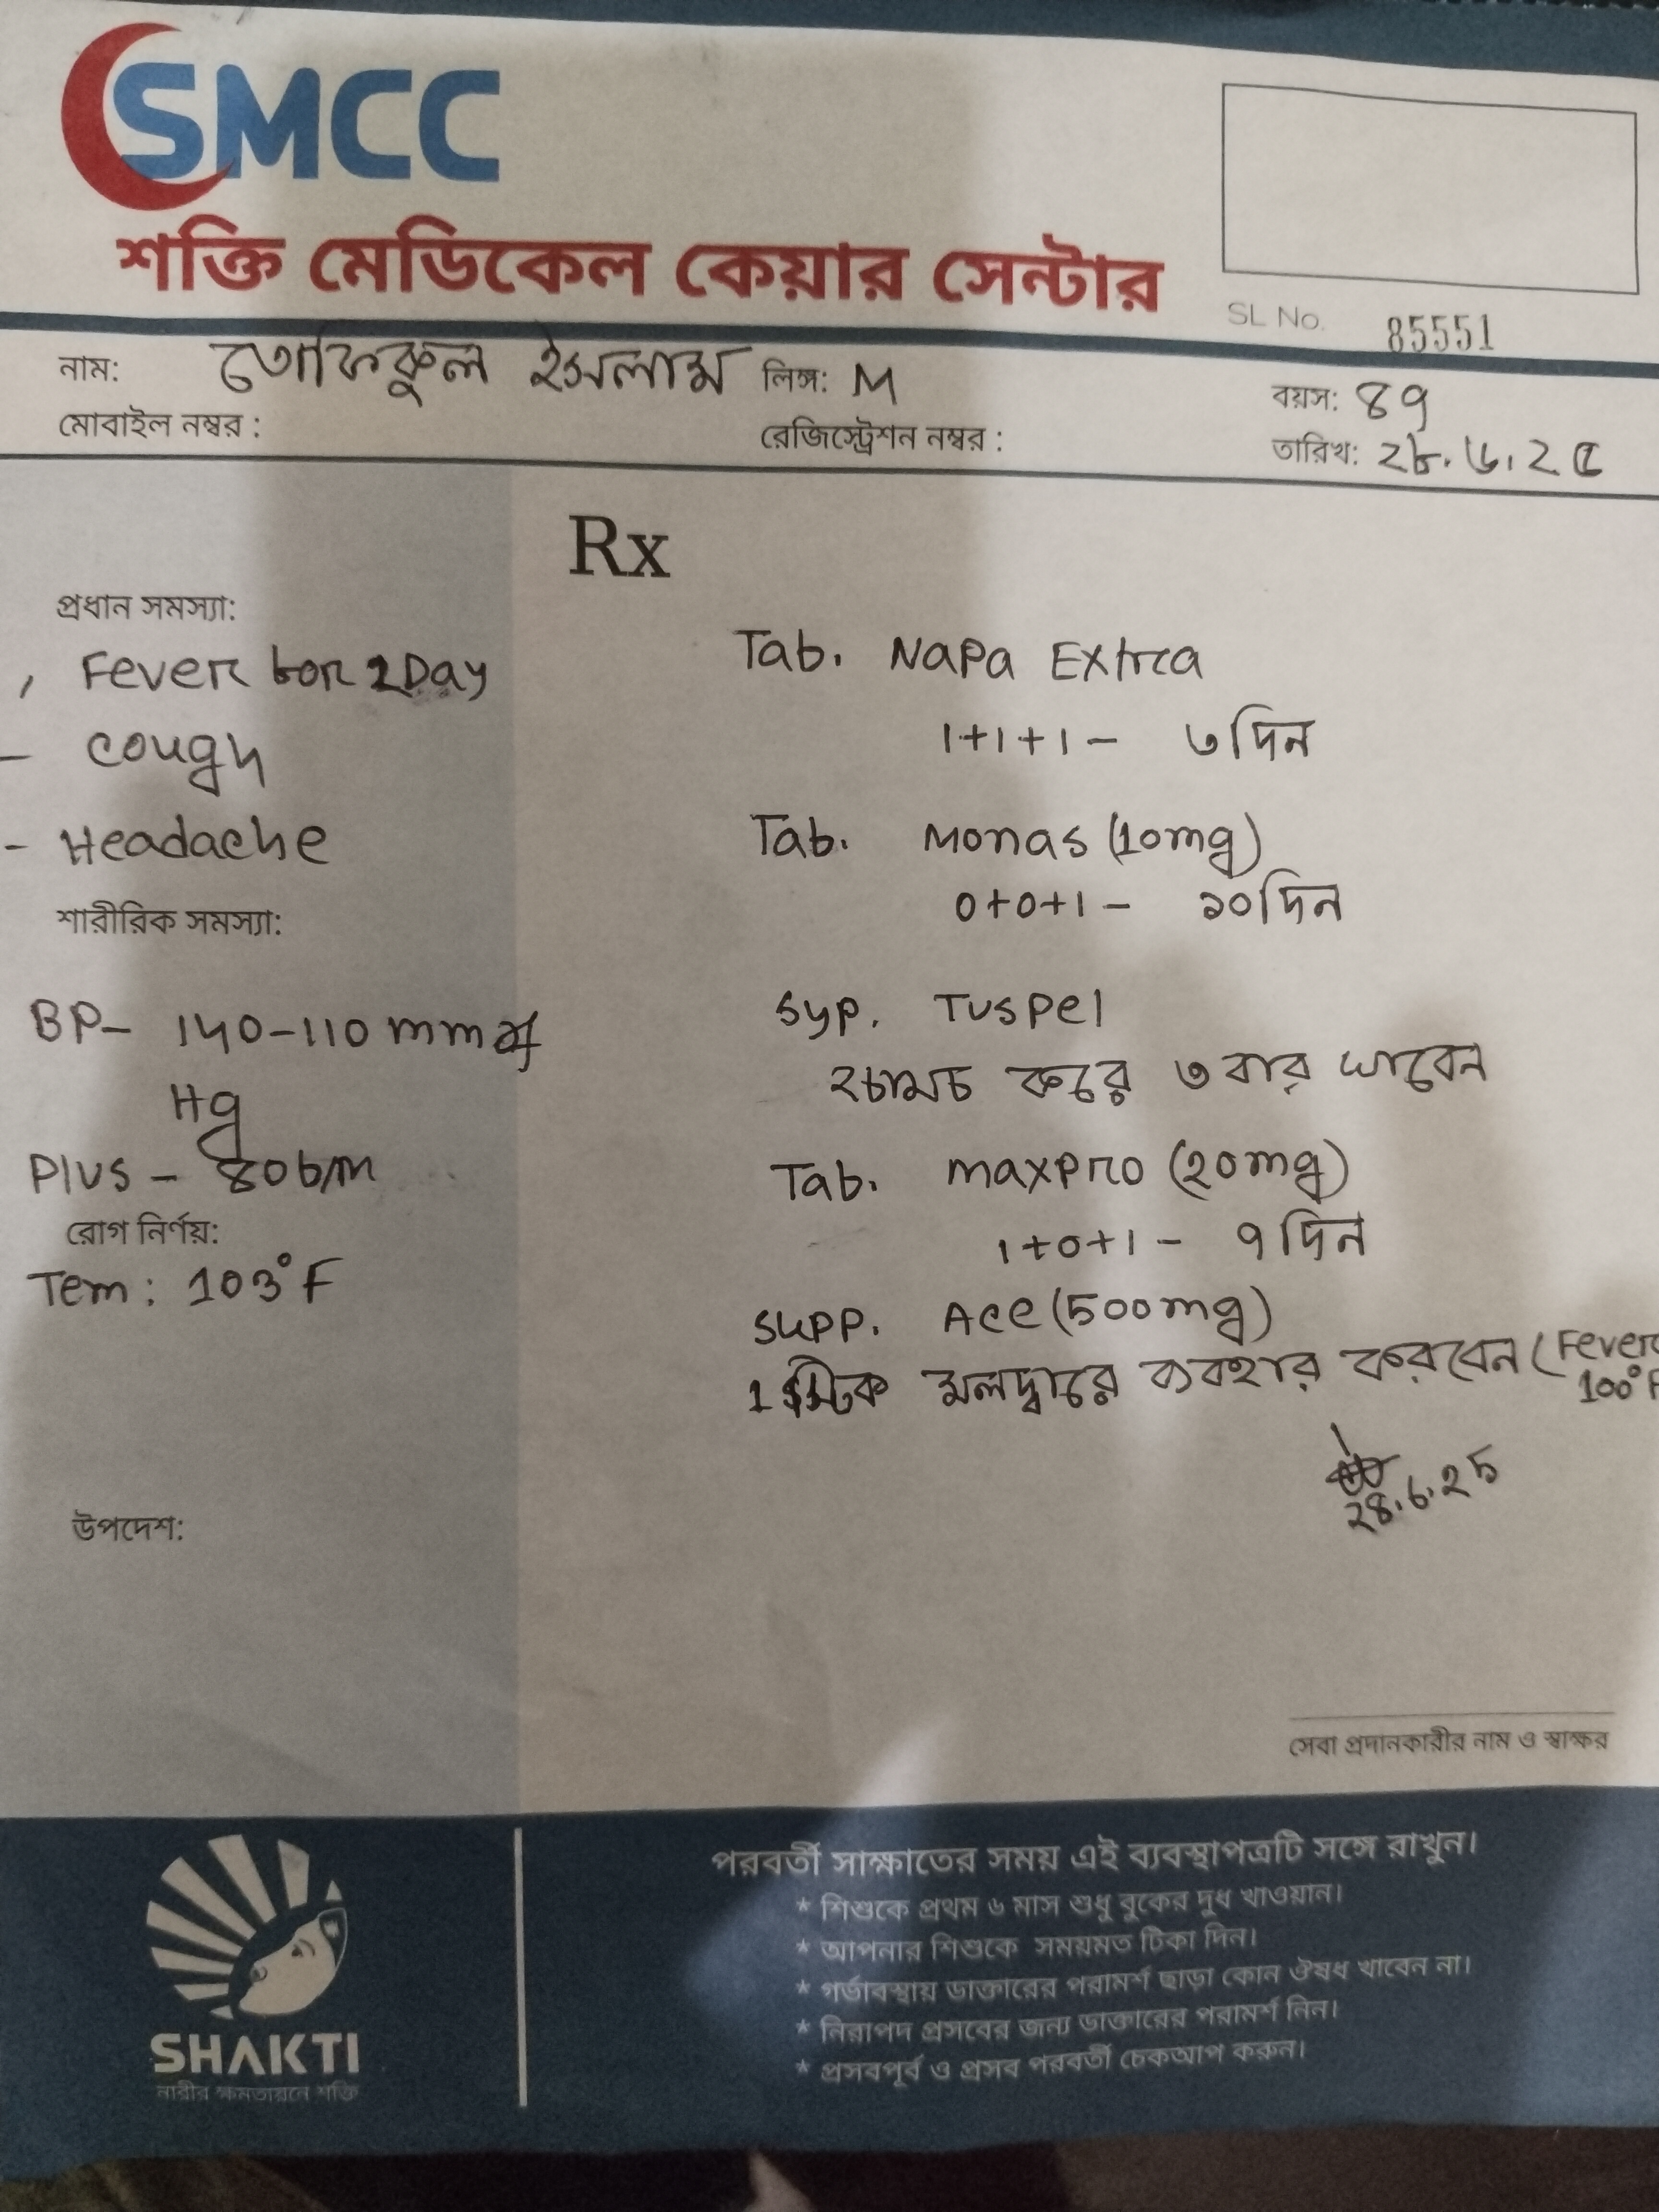 SMCC
শক্তি মেডিকেল কেয়ার সেন্টার
SL No. 85551
নাম: তোফিকুল ইসলাম লিঙ্গ: M বয়স: ৪৭
মোবাইল নম্বর : রেজিস্ট্রেশন নম্বর : তারিখ: ২৮.৬.২৫
Rx
প্রধান সমস্যা:
, Fever for 2Day
- cough
- Headache
শারীরিক সমস্যা:
BP- 140-110 mm of
Hg
Plus - 80b/m
রোগ নির্ণয়:
Tem: 103°F
উপদেশ:
Tab. Napa Extra
1+1+1 - ৩দিন
Tab. Monas (10mg)
0+0+1 - ১০দিন
Syp. Tuspel
২চামচ করে ৩ বার খাবেন
Tab. maxpro (20mg)
1+0+1 - ৭দিন
Supp. Ace (500mg)
1 স্টিক মলদ্বারে ব্যবহার করবেন (Fever
100°F
28.6.25
সেবা প্রদানকারীর নাম ও স্বাক্ষর
SHAKTI
নারীর ক্ষমতায়নে শক্তি
পরবর্তী সাক্ষাতের সময় এই ব্যবস্থাপত্রটি সঙ্গে রাখুন।
* শিশুকে প্রথম ৬ মাস শুধু বুকের দুধ খাওয়ান।
* আপনার শিশুকে সময়মত টিকা দিন।
* গর্ভাবস্থায় ডাক্তারের পরামর্শ ছাড়া কোন ঔষধ খাবেন না।
* নিরাপদ প্রসবের জন্য ডাক্তারের পরামর্শ নিন।
* প্রসবপূর্ব ও প্রসব পরবর্তী চেকআপ করুন।